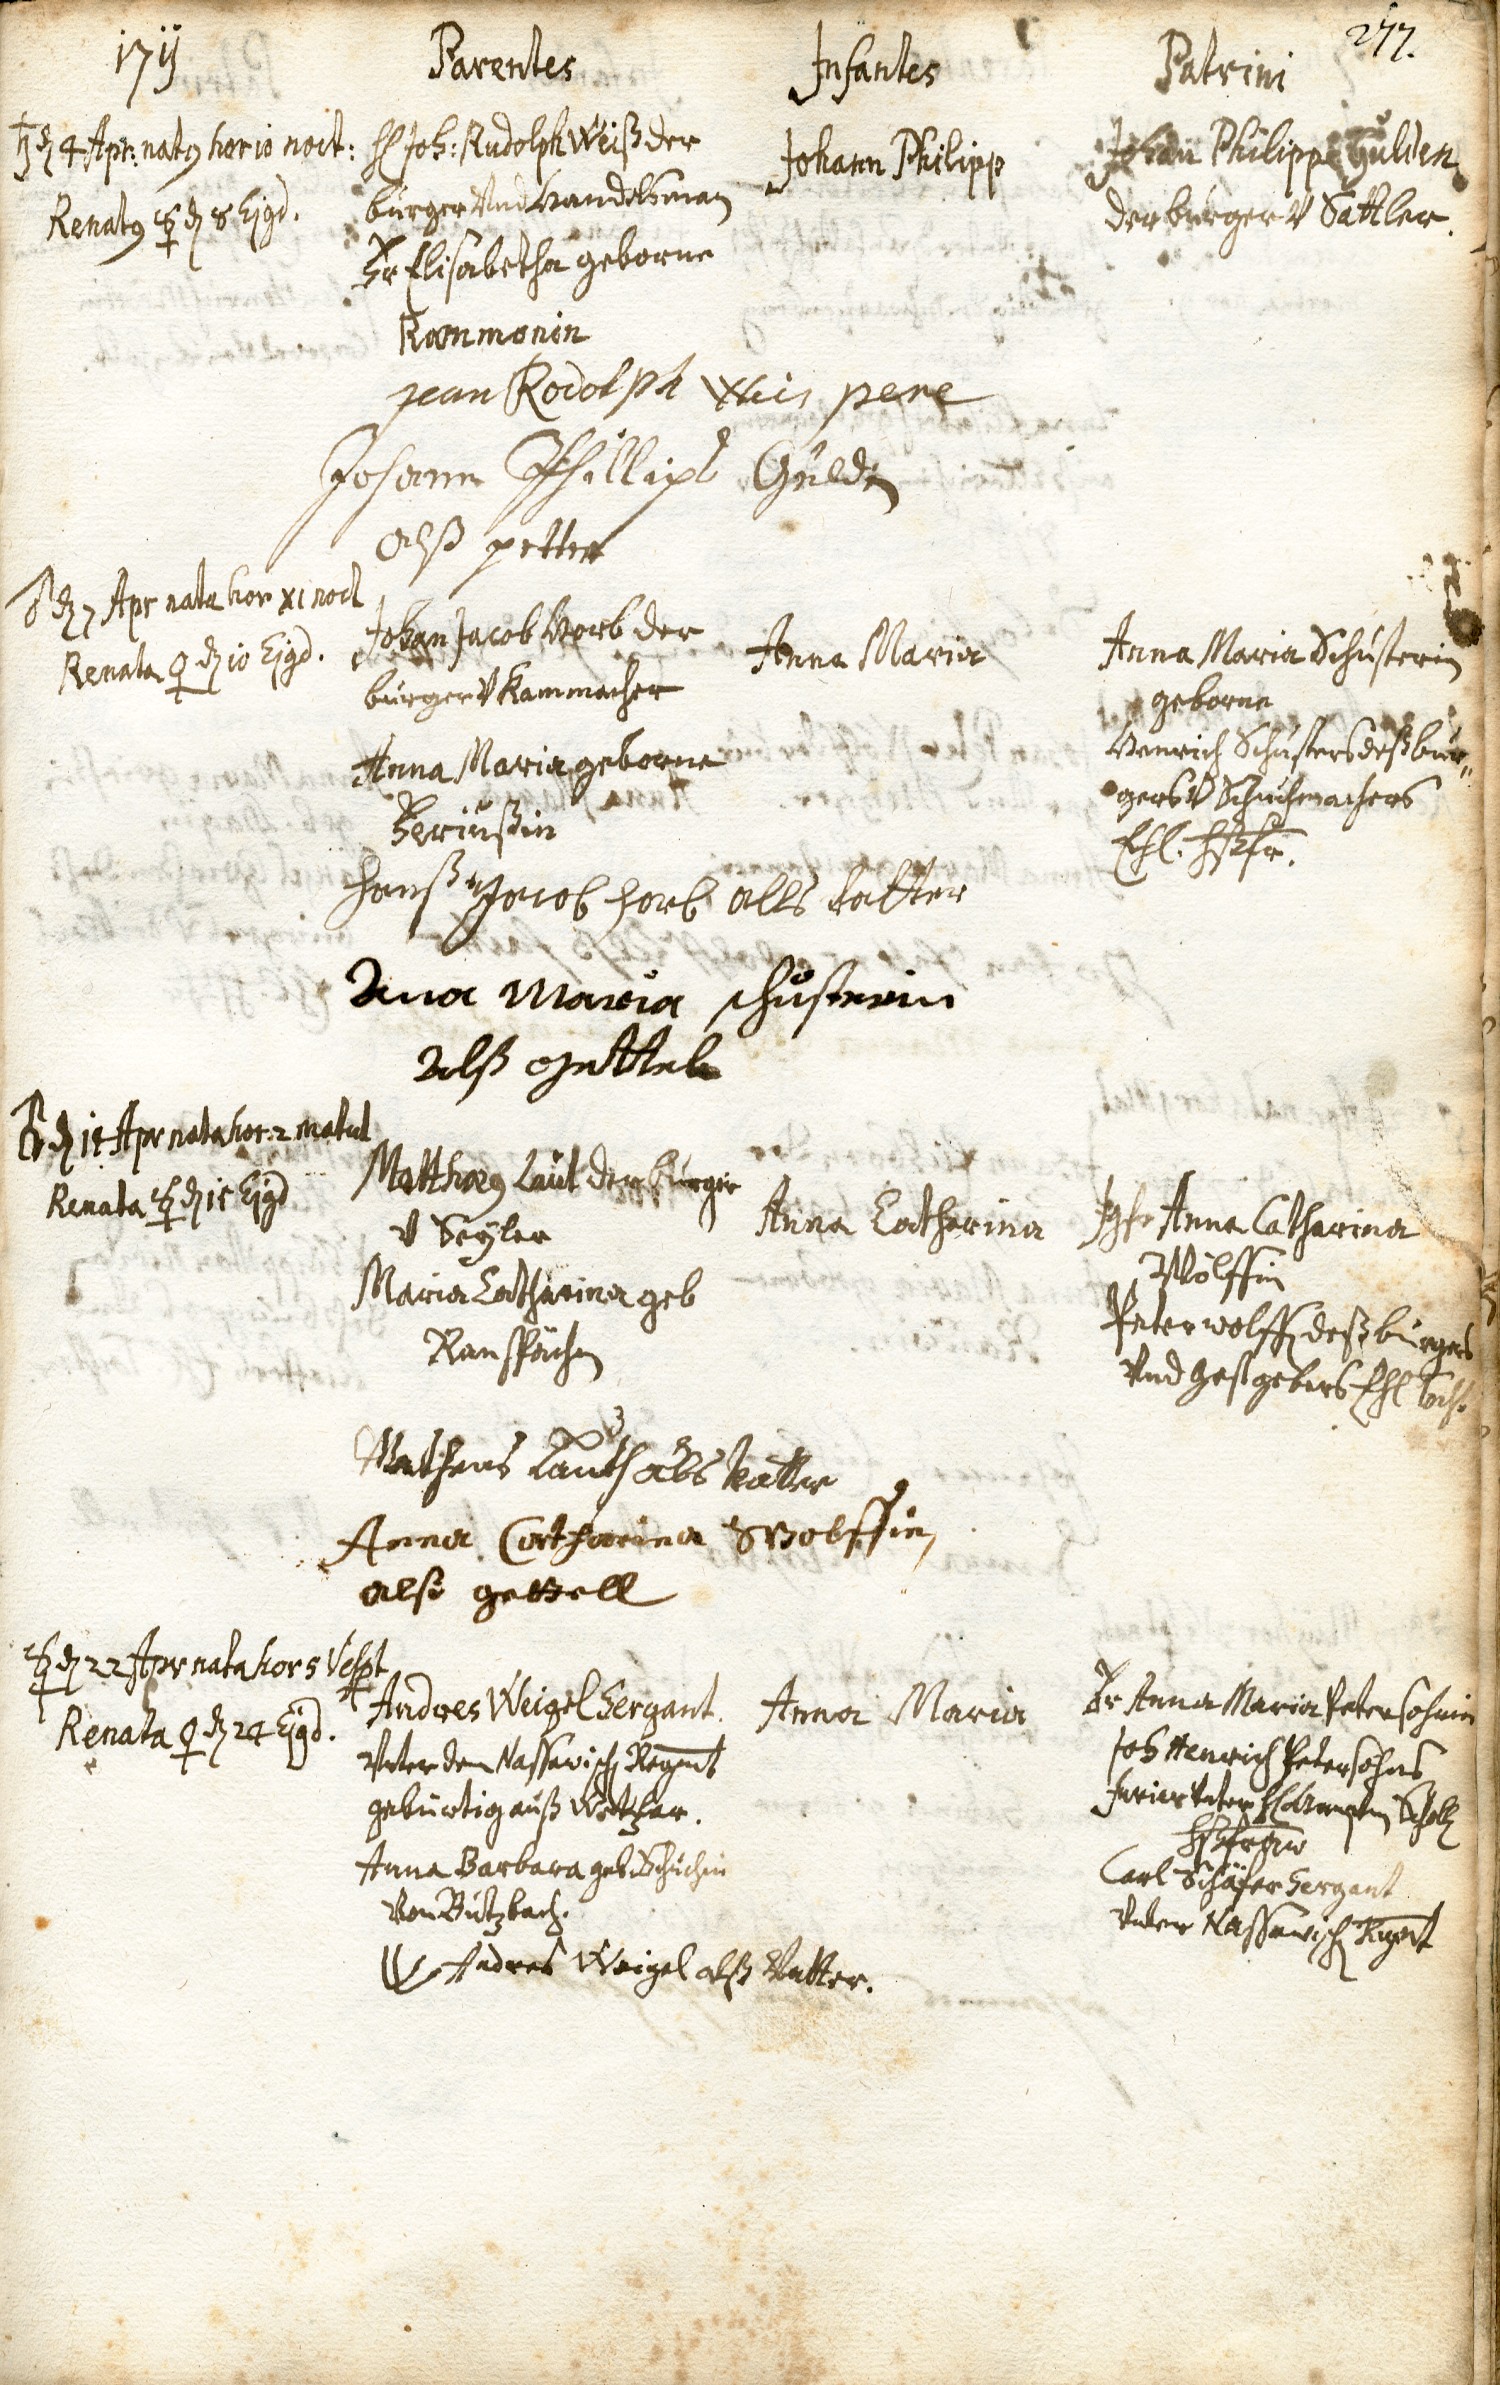 1711
Parentes
Infantes
Patrini
277.
♄ d 4 Apr: natus hor 10 noct:
Renatus ☿ d 8 Ejgd.
H Joh: Rudolph Weiß der
burger Und Handelsman
Fr Elisabetha geborne
Rammonin
Johann Philipp
Johan Philipps Gulden
der burger V Sattler.
jean Rodolph Weis pere
Johann Phillips Gulden
alß petter
♂ d 7 Apr nata hor XI noct
Renata ♀ d 10 Ejgd.
Johan Jacob Horb der
burger V Kammacher
Anna Maria geborne
Anna Maria
Anna Maria Schusterin
geborne
Henrich Schusters deß bur„
gers V Schuhmachers
Ehl. Hßfr.
Hanß Jacob Horb alls Vatter
Anna Maria schusterin
Alß gettel
Apr nata hor: 2 matut
Renata ☿ d 15 Ejgd
Matthæus Laut der burger
V Seyler
Maria Catharina geb
Anna Catharina
Jgfr Anna Catharina
Wolffin
Peter Wolffen deß burgers
Und Gastgebers Ehl Tocht.
Matheus Lauth als Vatter
Anna Catharina Wolffin
alß gettell
☿ d 22 Apr nata hor 5 Vespt
Renata ♀ d 24 Ejgd.
Andres Weigel Sergant
Unter dem Nassawisch Regmt
gebürtig auß Wetzlar.
Anna Barbara geb. Schuchin
Von Butzbach.
Anna Maria
Fr Anna Maria Petersohnin
Joh Henrich Petersohns
Furier Unter H
Hßfraw
Carl Schäfer Sergant
Unter Nassawisch Regmt
Andres Weigel alß Vatter.